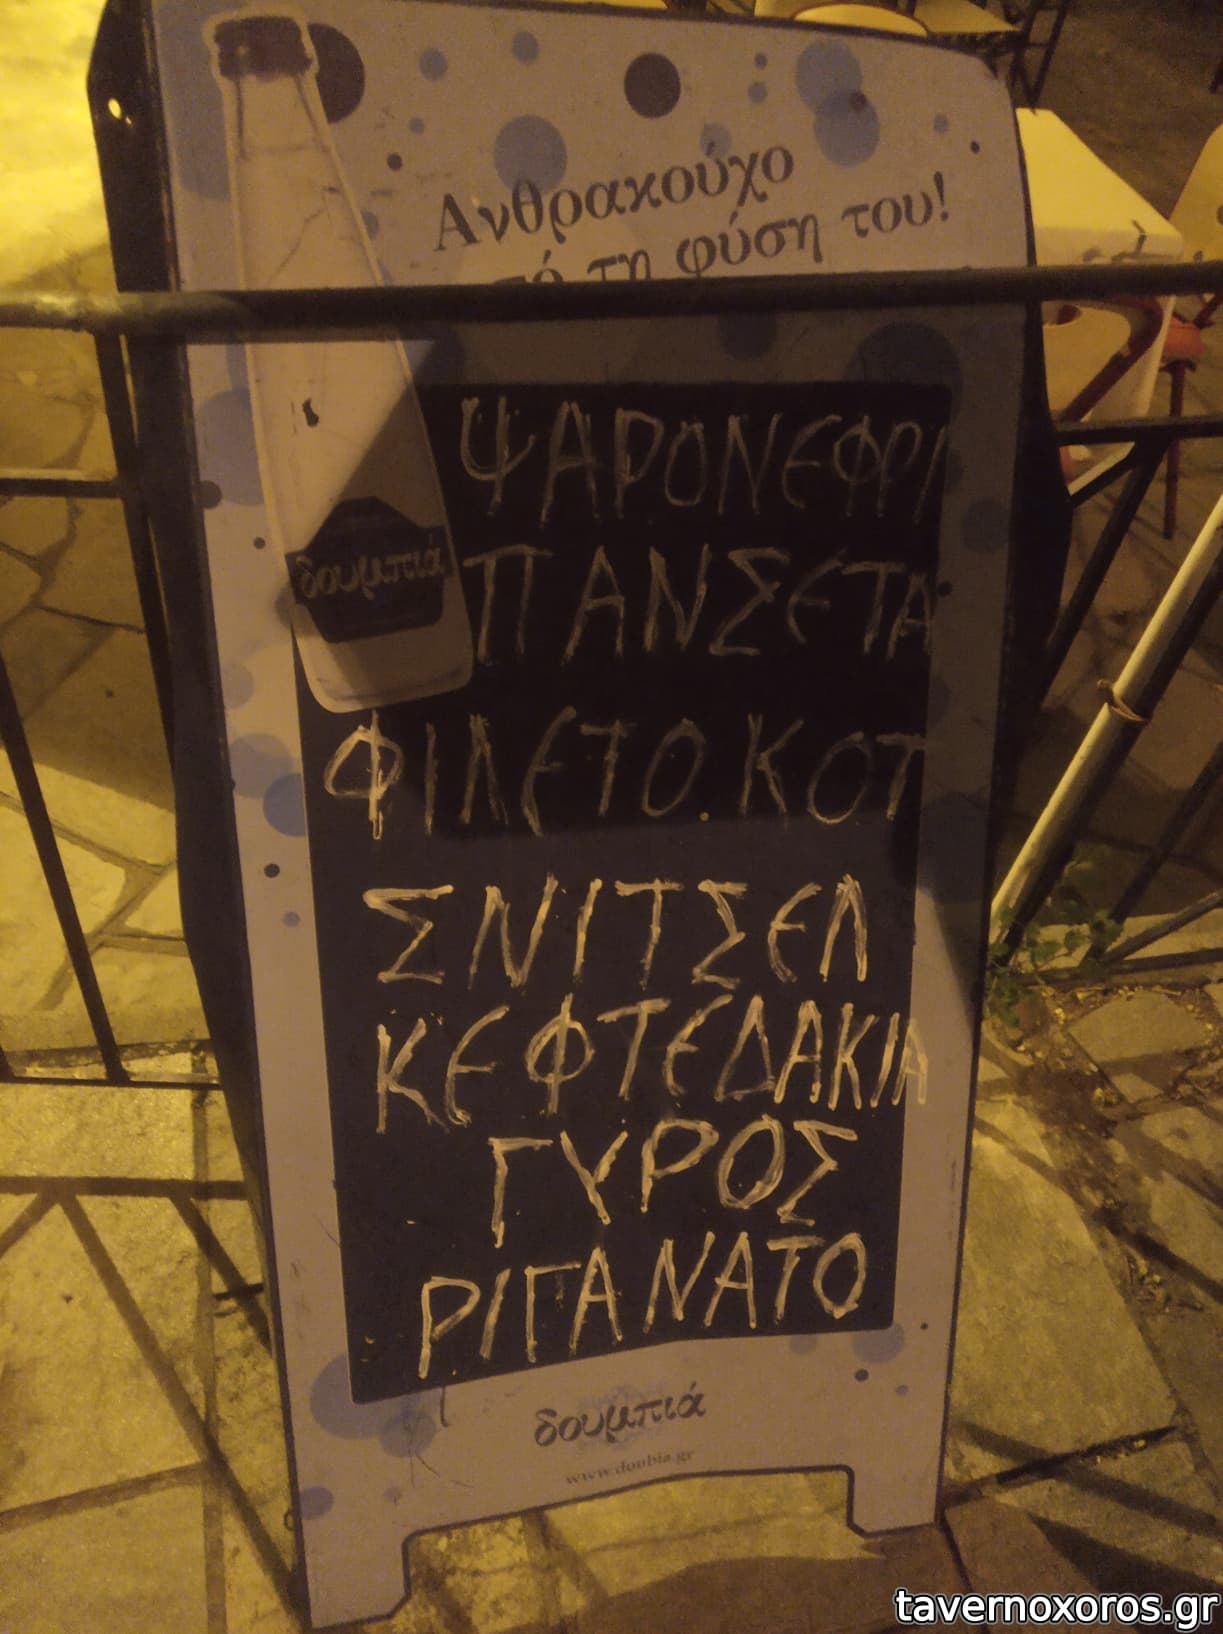 Ανθρακούχο
από τη φύση του!
ΨΑΡΟΝΕΦΡΙ
δουμπιά
ΠΑΝΣΕΤΑ
ΦΙΛΕΤΟ.ΚΟΤ
ΣΝΙΤΣΕΛ
ΚΕΦΤΕΔΑΚΙΑ
ΓΥΡΟΣ
ΡΙΓΑΝΑΤΟ
δουμπιά
www.doubia.gr
tavernoxoros.gr